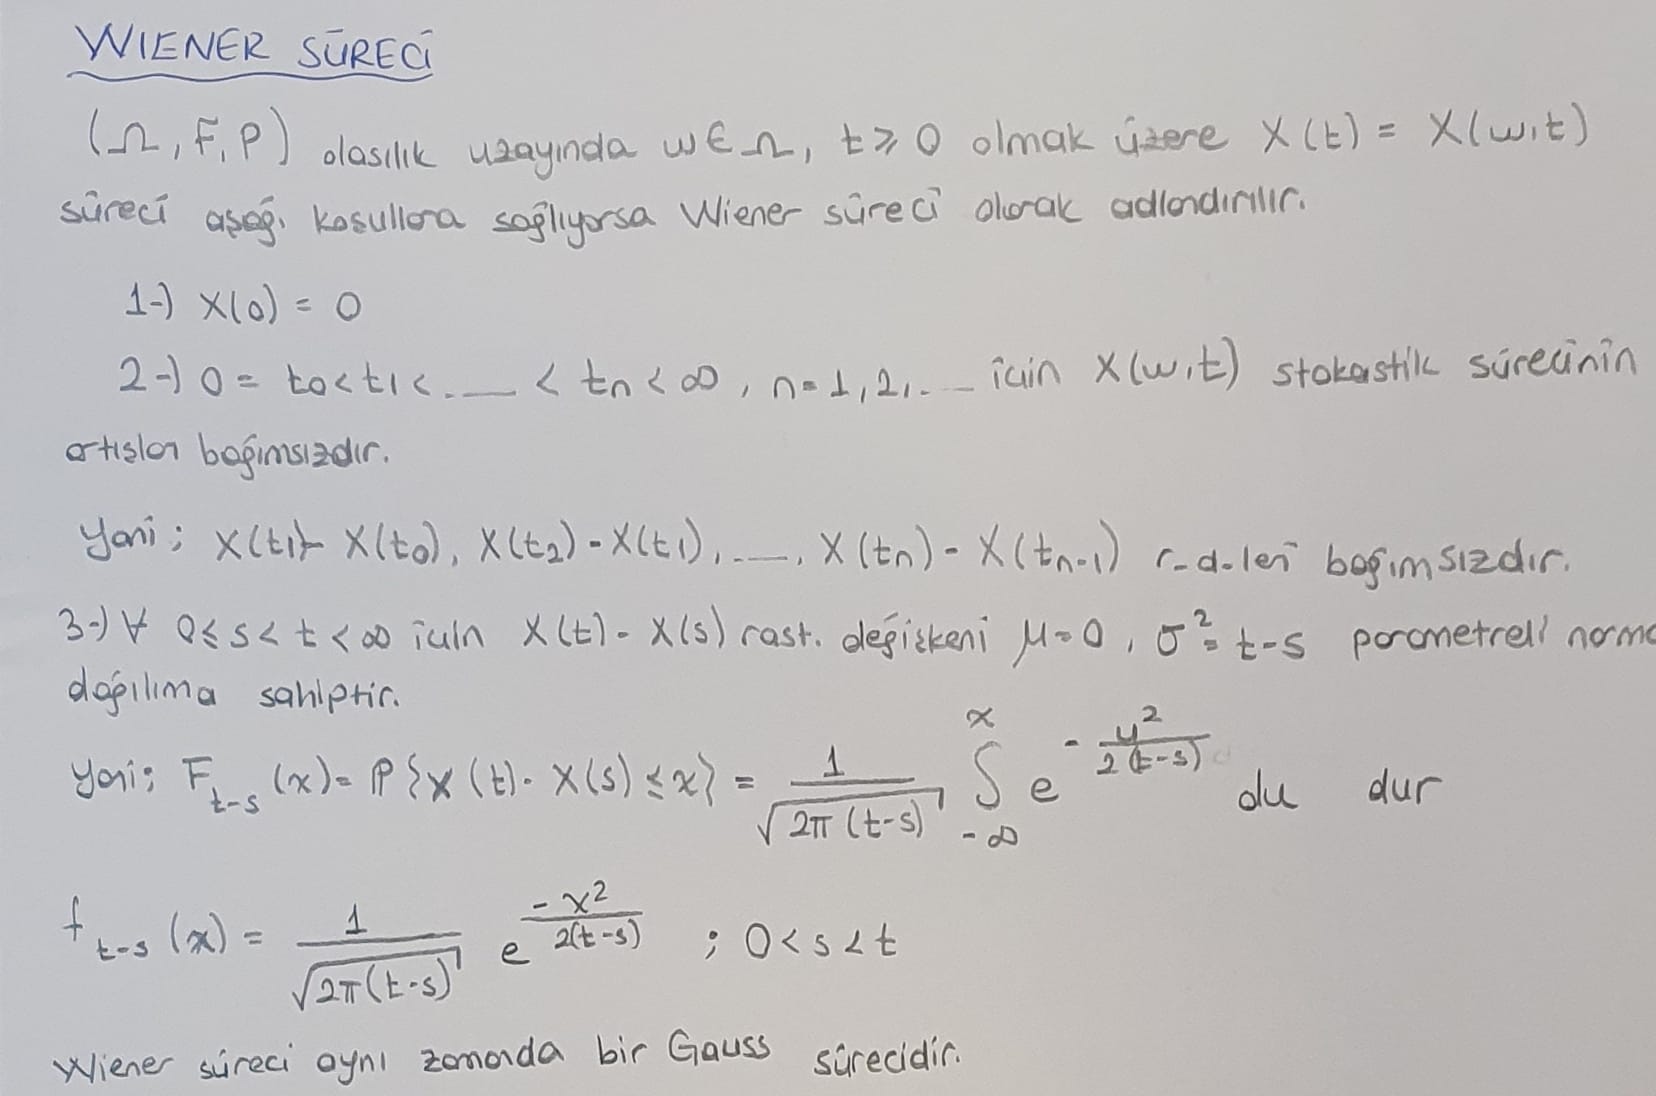 WIENER SÜRECİ
(Ω, F, P) olasılık uzayında w ∈ Ω, t ≥ 0 olmak üzere X(t) = X(w,t)
süreci aşağı koşullara sağlıyorsa Wiener süreci olarak adlandırılır.
1-) X(0) = 0
2-) 0 = t0 < t1 < ... < tn < ∞, n = 1, 2, ... için X(w,t) stokastik sürecinin
artışları bağımsızdır.
Yani; X(t1) - X(t0), X(t2) - X(t1), ..., X(tn) - X(tn-1) r-d-leri bağımsızdır.
3-) ∀ 0 ≤ s < t < ∞ için X(t) - X(s) rast. değişkeni μ = 0, σ² = t-s parametreli norma
dağılıma sahiptir.
Yani; F_{t-s}(x) = P{X(t) - X(s) ≤ x} = 1/√(2π(t-s)) ∫_{-∞}^{x} e^{-u²/(2(t-s))} du dur
f_{t-s}(x) = 1/√(2π(t-s)) e^{-x²/(2(t-s))} ; 0 < s < t
Wiener süreci aynı zamanda bir Gauss sürecidir.